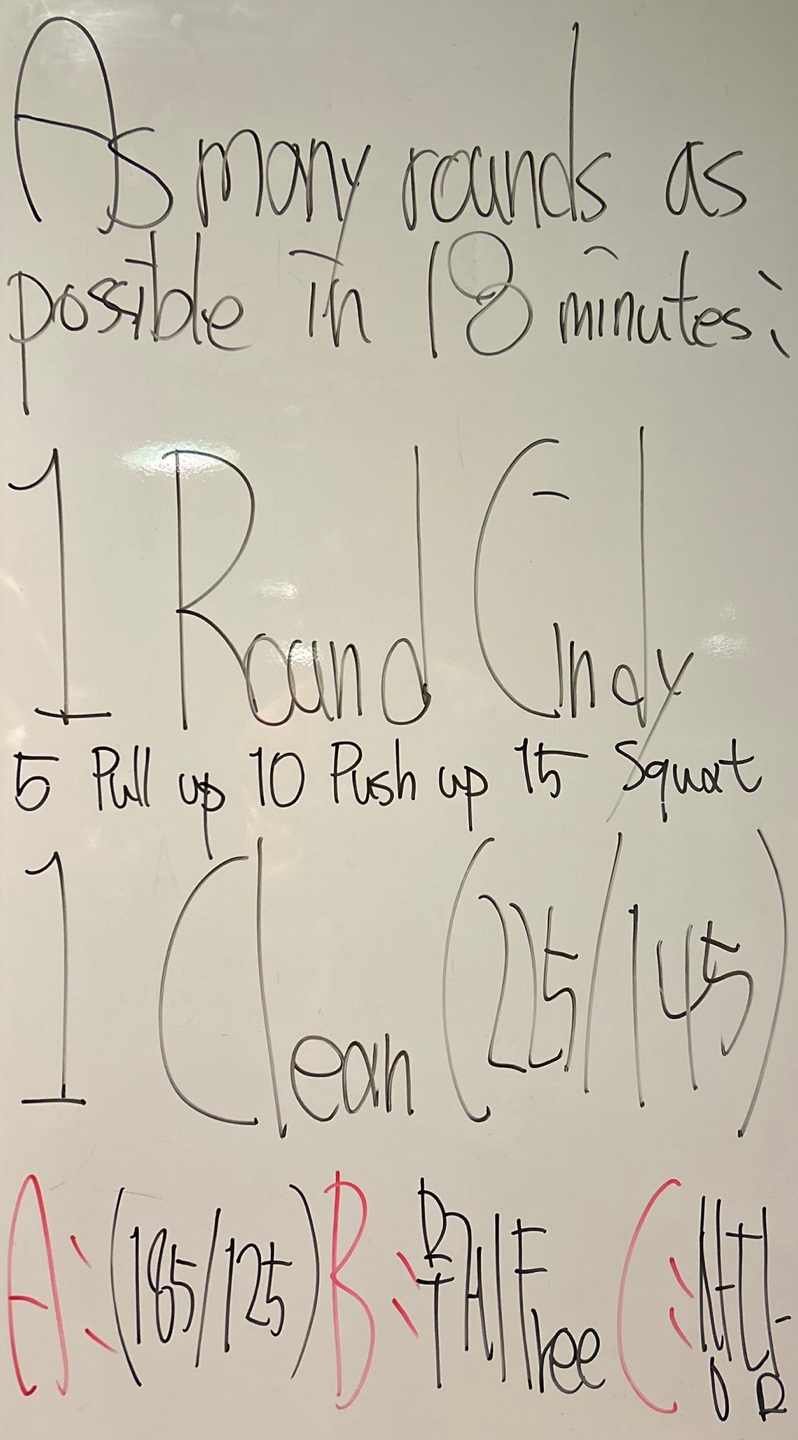 As many rounds as
possible in 18 minutes:
1 Round Cindy
5 Pull up 10 Push up 15 Squat
1 Clean (225/145)
A: (185/125) B: Free C: